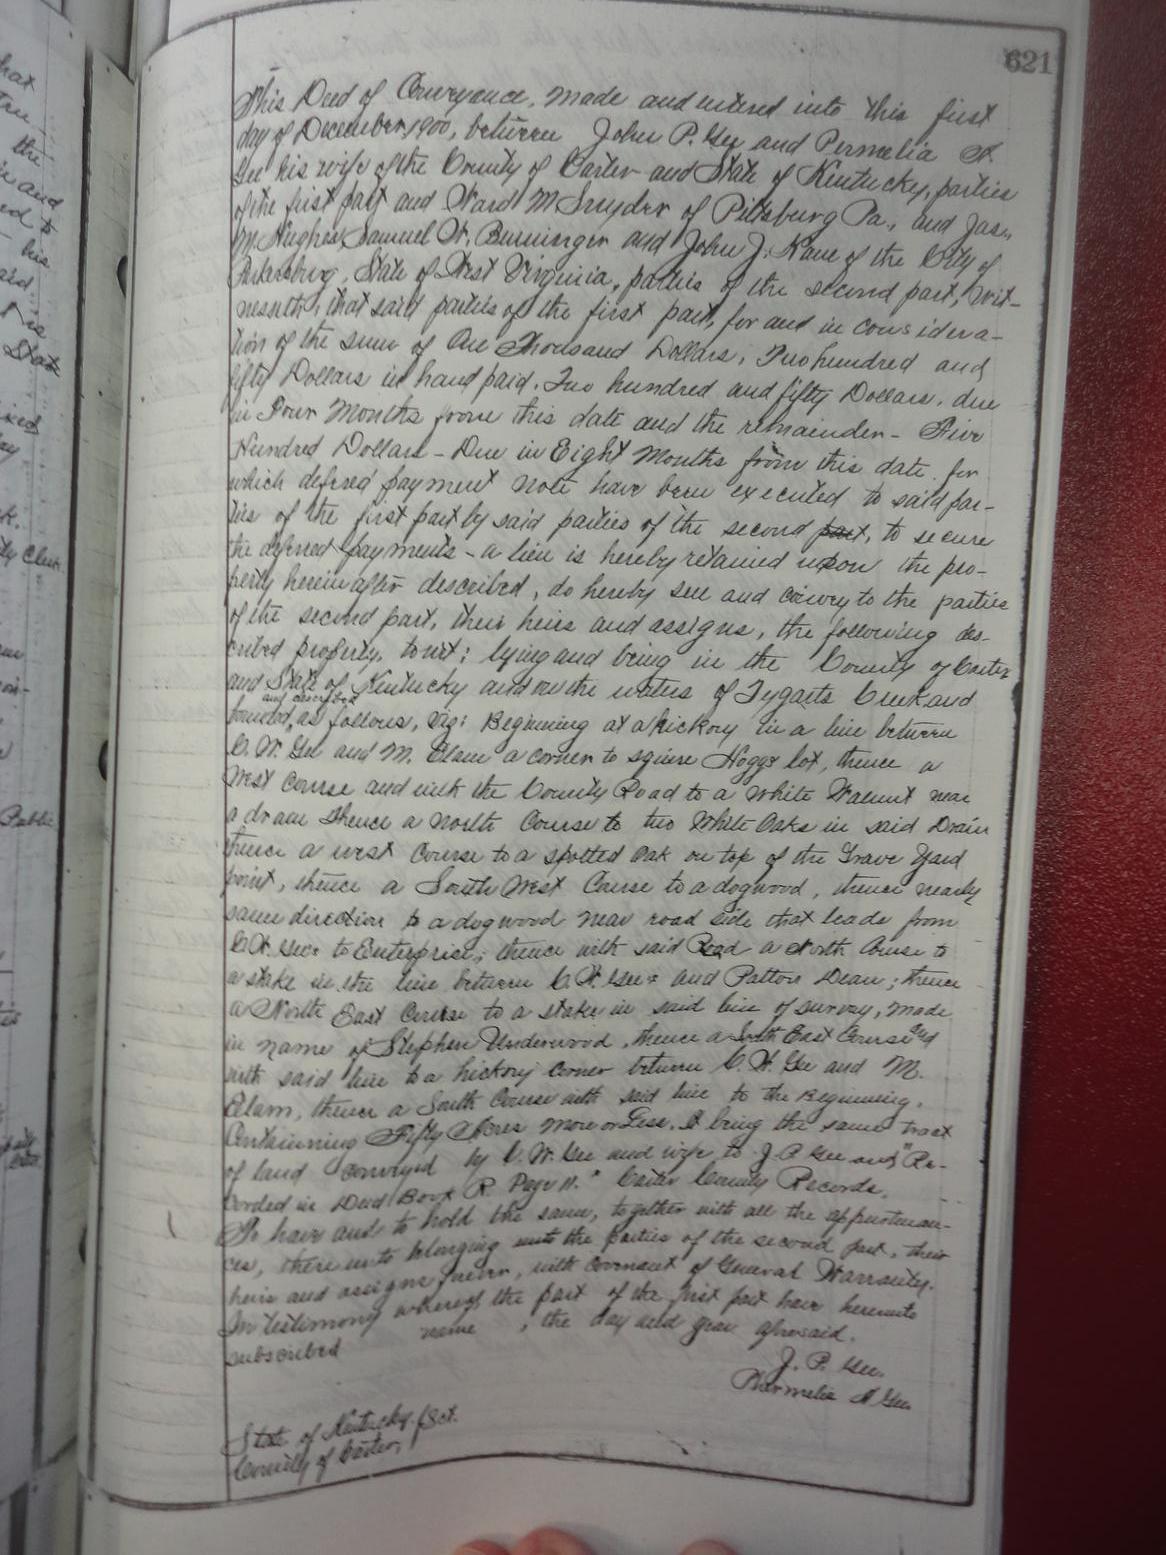 621
This Deed of Conveyance, made and entered into this first
day of December, 1900, between John P. Gee and Permelia A.
Gee his wife of the County of Carter and State of Kentucky, parties
of the first part and Ward M Snyder of Pittsburg Pa., and Jas.
M. Hughes, Samuel W. Burninger and John J. Kane of the City of
Parkersburg, State of West Virginia, parties of the second part, Wit-
nesseth, that said parties of the first part, for and in considera-
tion of the sum of One Thousand Dollars, Two hundred and
fifty Dollars in hand paid, Two hundred and fifty Dollars, due
in Four Months from this date and the remainder - Five
Hundred Dollars - Due in Eight Months from this date for
which defered payment note have been executed to said par-
ties of the first part by said parties of the second part, to secure
the deferred payments - a lien is hereby retained upon the pro-
perty herein after described, do hereby sell and convey to the parties
of the second part, their heirs and assigns, the following des-
cribed property, towit: lying and being in the County of Carter
and State of Kentucky and on the waters of Tygarts Creek and
bounded, and described as follows, viz: Beginning at a hickory in a line between
C. W. Gee and M. Elam a corner to squire Hoggs lot, thence a
West Course and with the County Road to a White Walnut near
a drain thence a North Course to two White Oaks in said Drain
thence a west Course to a spotted Oak on top of the Grave Yard
point, thence a South West Course to a dogwood, thence nearly
same direction to a dogwood near road side that leads from
C. W. Gees to Enterprise; thence with said Road a North Course to
a stake in the line between C. W. Gees and Patton Dean; thence
a North East Course to a stake in said line of survey, made
in name of Stephen Underwood, thence a South East Course and
with said line to a hickory corner between C. W. Gee and M.
Elam, thence a South Course with said line to the Beginning.
Containing Fifty Acres more or Less. It being the same tract
of land conveyed by C. W. Gee and wife to J. P. Gee and "Re-
corded in Deed Book R. Page 11." Carter County Records.
To have and to hold the same, together with all the appurtenan-
ces, there unto belonging unto the parties of the second part, their
heirs and assigns forever, with covenant of General Warranty.
In testimony whereof the part of the first part have hereunto
subscribed name, the day and year aforesaid.
J. P. Gee.
Permelia A Gee.
State of Kentucky, Sct.
County of Carter,